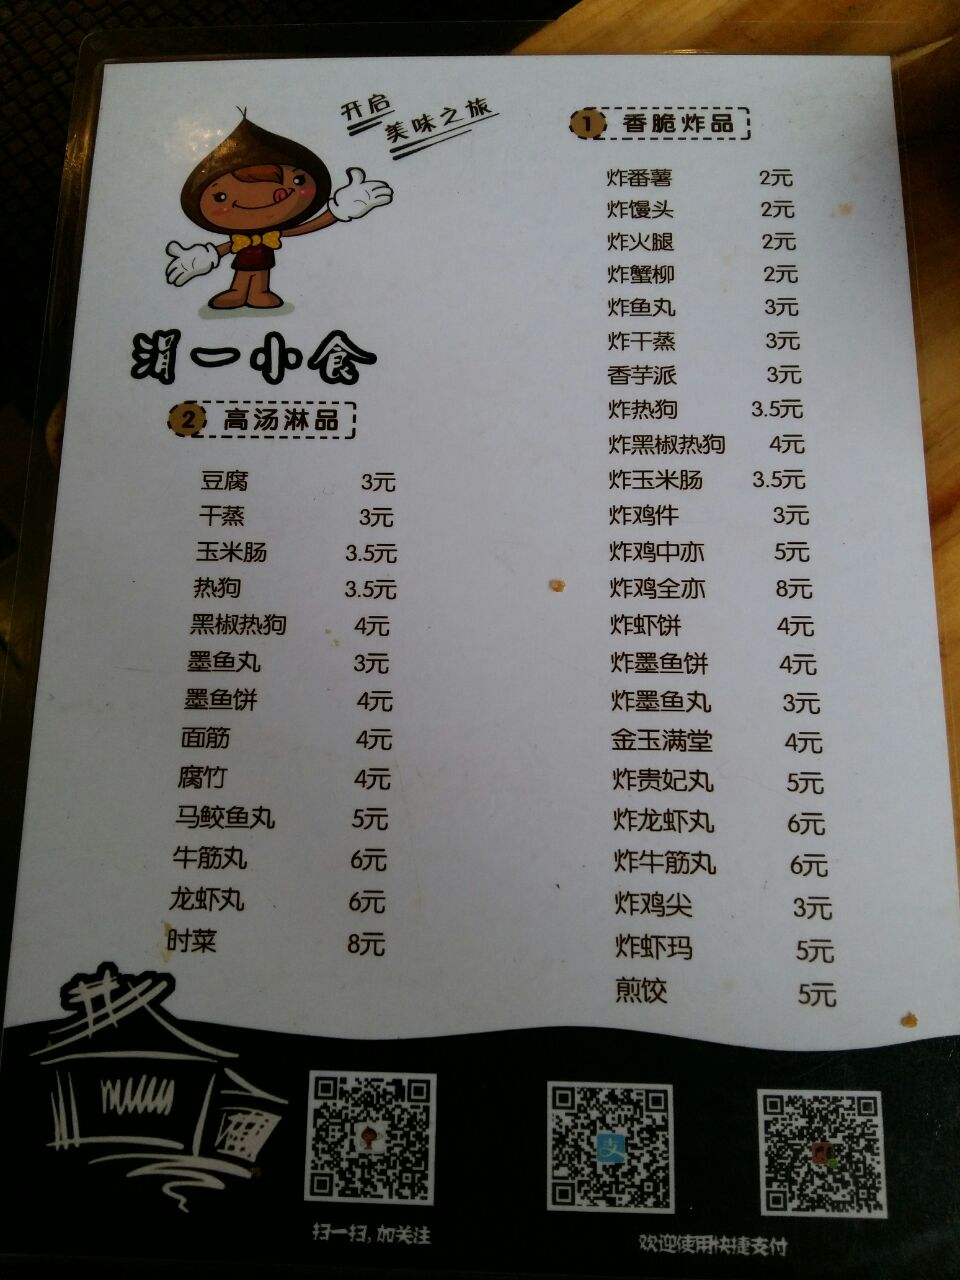 开启
美味之旅
涓一小食
1 香脆炸品
炸番薯 2元
炸馒头 2元
炸火腿 2元
炸蟹柳 2元
炸鱼丸 3元
炸干蒸 3元
香芋派 3元
炸热狗 3.5元
炸黑椒热狗 4元
炸玉米肠 3.5元
炸鸡件 3元
炸鸡中亦 5元
炸鸡全亦 8元
炸虾饼 4元
炸墨鱼饼 4元
炸墨鱼丸 3元
金玉满堂 4元
炸贵妃丸 5元
炸龙虾丸 6元
炸牛筋丸 6元
炸鸡尖 3元
炸虾玛 5元
煎饺 5元
2 高汤淋品
豆腐 3元
干蒸 3元
玉米肠 3.5元
热狗 3.5元
黑椒热狗 4元
墨鱼丸 3元
墨鱼饼 4元
面筋 4元
腐竹 4元
马鲛鱼丸 5元
牛筋丸 6元
龙虾丸 6元
时菜 8元
支
扫一扫, 加关注
欢迎使用快捷支付